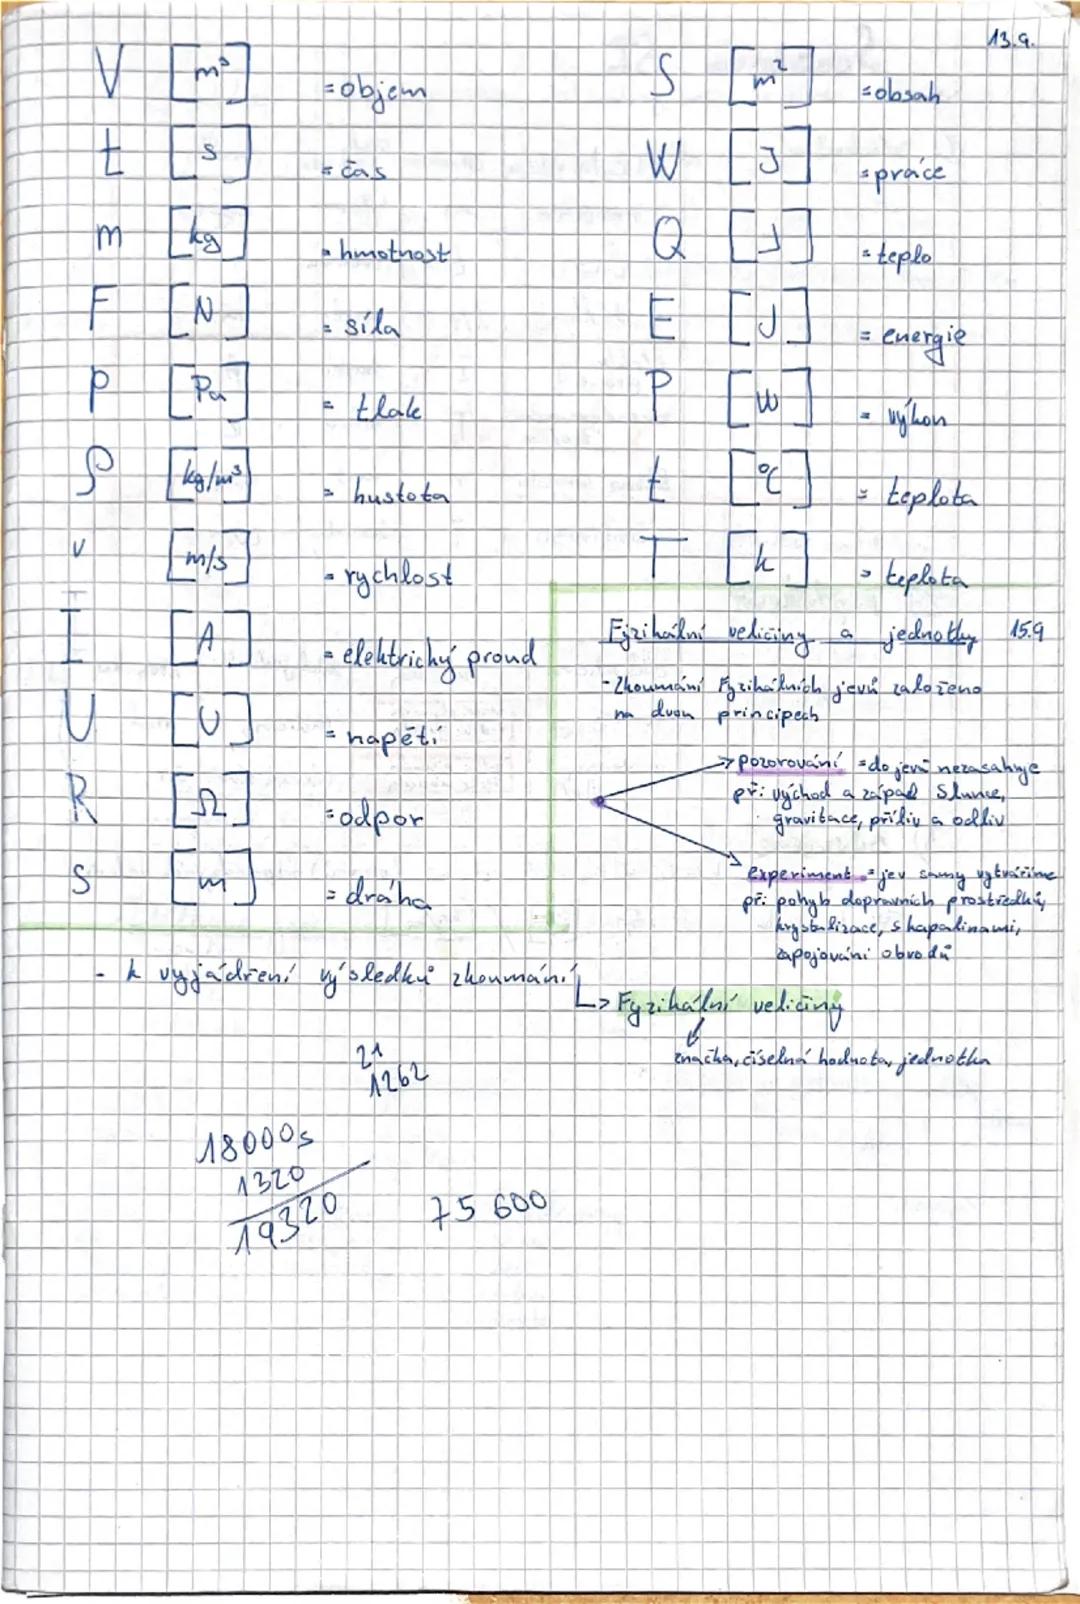 13.9.
V [m³] = objem
t [s] = čas
m [kg] = hmotnost
F [N] = síla
p [Pa] = tlak
ρ [kg/m³] = hustota
v [m/s] = rychlost
I [A] = elektrický proud
U [U] = napětí
R [Ω] = odpor
s [m] = dráha
S [m²] = obsah
W [J] = práce
Q [J] = teplo
E [J] = energie
P [W] = výkon
t [°C] = teplota
T [k] = teplota
Fyzikální veličiny a jednotky 15.9
- Zkoumání Fyzikálních jevů založeno
na dvou principech
→ pozorování = do jevů nezasahuje
př: východ a západ Slunce,
gravitace, příliv a odliv
→ experiment = jev samy vytváříme
př: pohyb dopravních prostředků,
krystalizace, s kapalinami,
zapojování obvodů
- k vyjádření výsledků zkoumání
↳ Fyzikální veličiny
značka, číselná hodnota, jednotka
21
1262
18000s
1320
19320
75 600